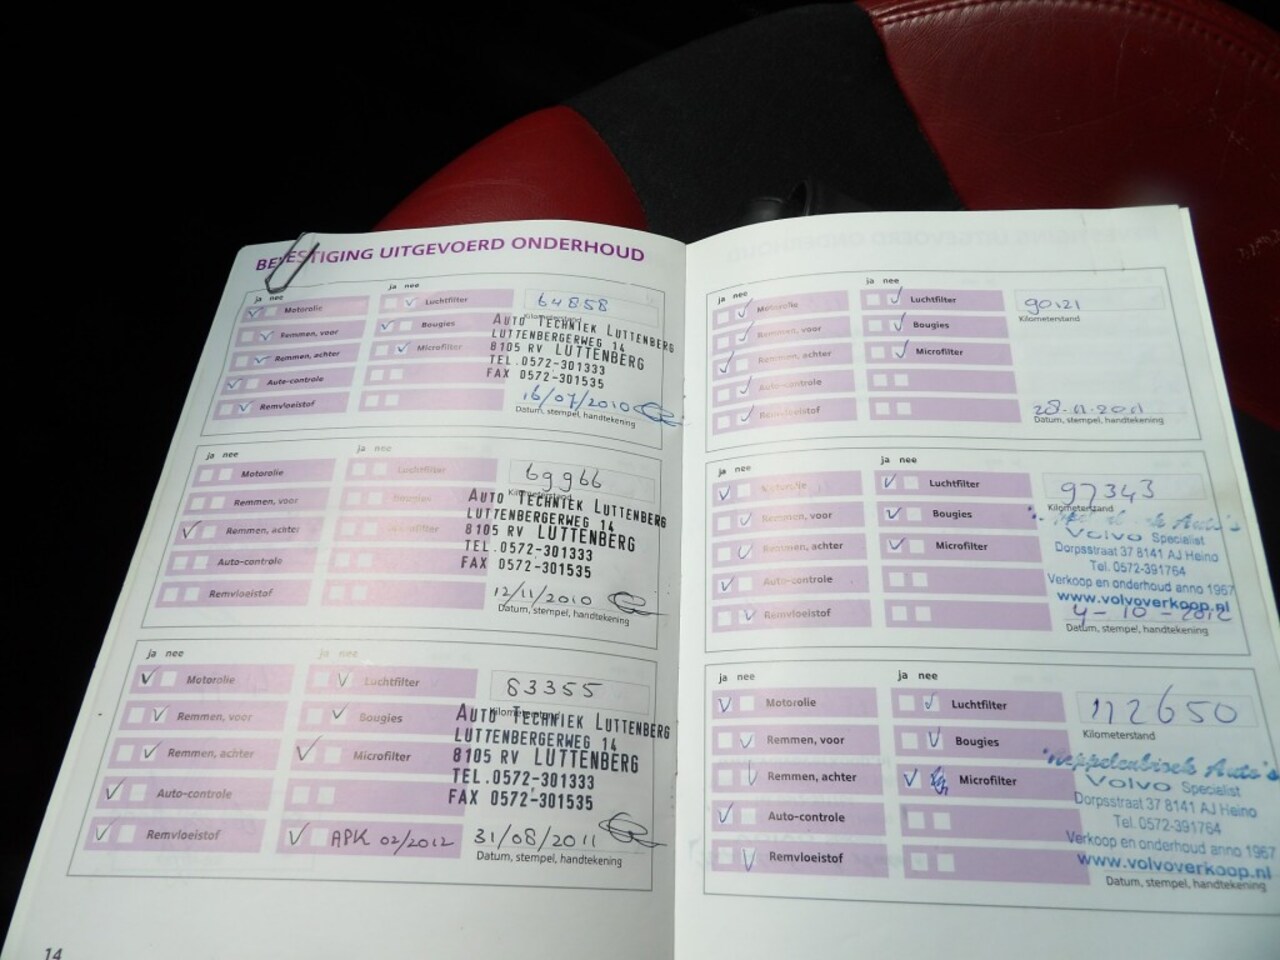 BEVESTIGING UITGEVOERD ONDERHOUD
ja nee
Motorolie
Remmen, voor
Remmen, achter
Auto-controle
Remvloeistof
ja nee
Luchtfilter
Bougies
Microfilter
64858
Kilometerstand
AUTO TECHNIEK LUTTENBERG
LUTTENBERGERWEG 14
8105 RV LUTTENBERG
TEL.0572-301333
FAX 0572-301535
16/07/2010
Datum, stempel, handtekening
ja nee
Motorolie
Remmen, voor
Remmen, achter
Auto-controle
Remvloeistof
ja nee
Luchtfilter
Bougies
Microfilter
69966
Kilometerstand
AUTO TECHNIEK LUTTENBERG
LUTTENBERGERWEG 14
8105 RV LUTTENBERG
TEL.0572-301333
FAX 0572-301535
12/11/2010
Datum, stempel, handtekening
ja nee
Motorolie
Remmen, voor
Remmen, achter
Auto-controle
Remvloeistof
ja nee
Luchtfilter
Bougies
Microfilter
APK 02/2012
83355
Kilometerstand
AUTO TECHNIEK LUTTENBERG
LUTTENBERGERWEG 14
8105 RV LUTTENBERG
TEL.0572-301333
FAX 0572-301535
31/08/2011
Datum, stempel, handtekening
14
ja nee
Motorolie
Remmen, voor
Remmen, achter
Auto-controle
Remvloeistof
ja nee
Luchtfilter
Bougies
Microfilter
90121
Kilometerstand
Datum, stempel, handtekening
ja nee
Motorolie
Remmen, voor
Remmen, achter
Auto-controle
Remvloeistof
ja nee
Luchtfilter
Bougies
Microfilter
97343
Kilometerstand
Auto's
Volvo Specialist
Dorpsstraat 37 8141 AJ Heino
Tel. 0572-391764
Verkoop en onderhoud anno 1967
www.volvoverkoop.nl
4-10-2012
Datum, stempel, handtekening
ja nee
Motorolie
Remmen, voor
Remmen, achter
Auto-controle
Remvloeistof
ja nee
Luchtfilter
Bougies
Microfilter
112650
Kilometerstand
Auto's
Volvo Specialist
Dorpsstraat 37 8141 AJ Heino
Tel. 0572-391764
Verkoop en onderhoud anno 1967
www.volvoverkoop.nl
Datum, stempel, handtekening